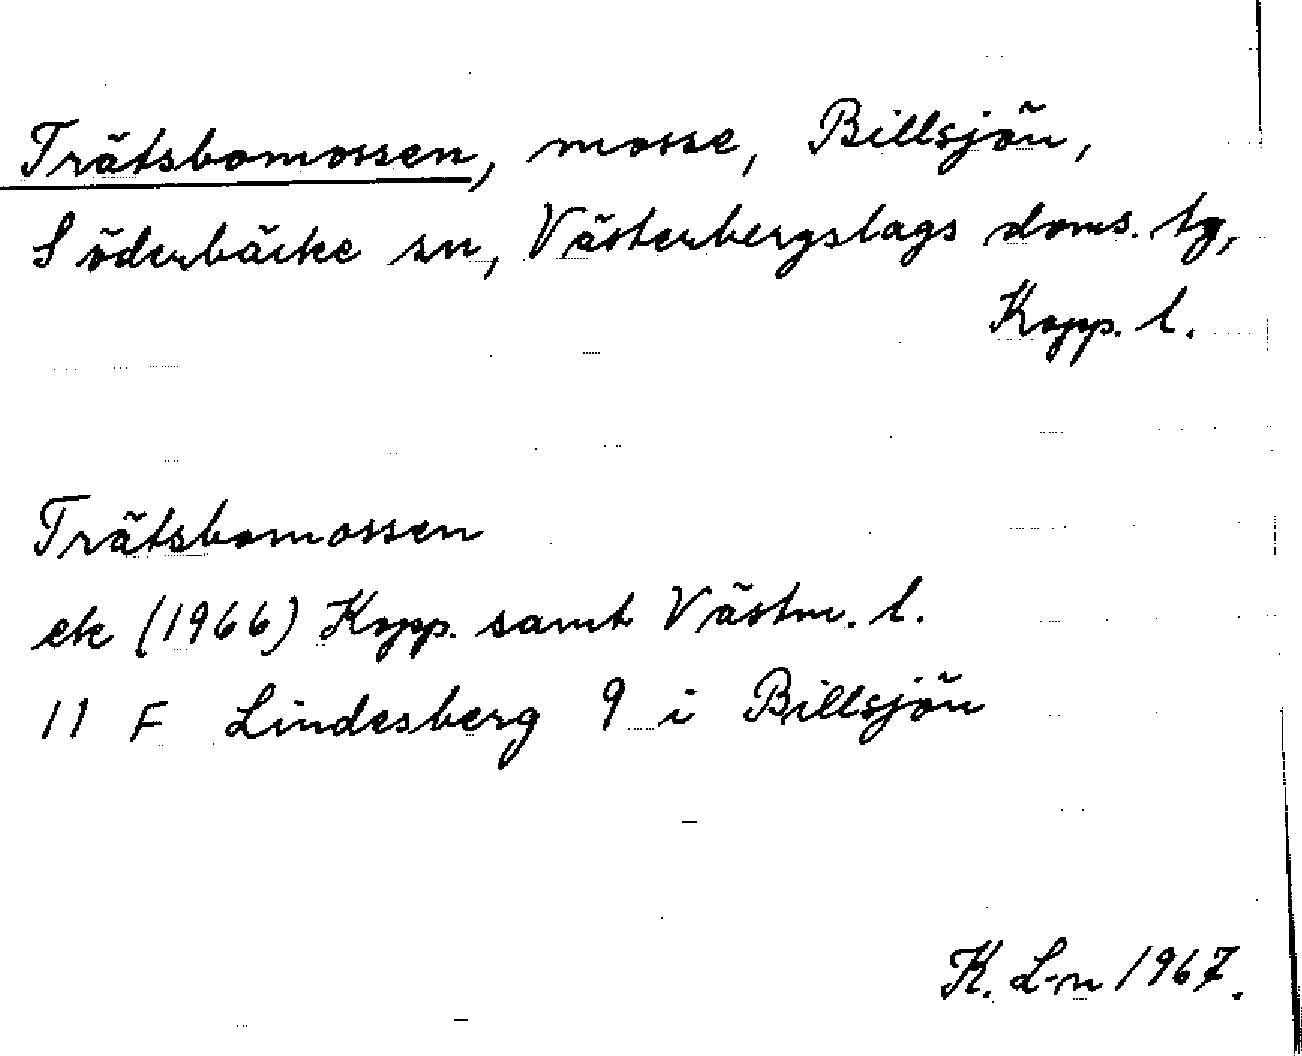 Trätsbomossen, mosse, Billsjön,
Söderbärke sn, Västerbergslags doms. tg,
Kopp. l.
Trätsbomossen
ek (1966) Kopp. samt Västm. l.
11 F Lindesberg 9 i Billsjön
K. L-n 1967.